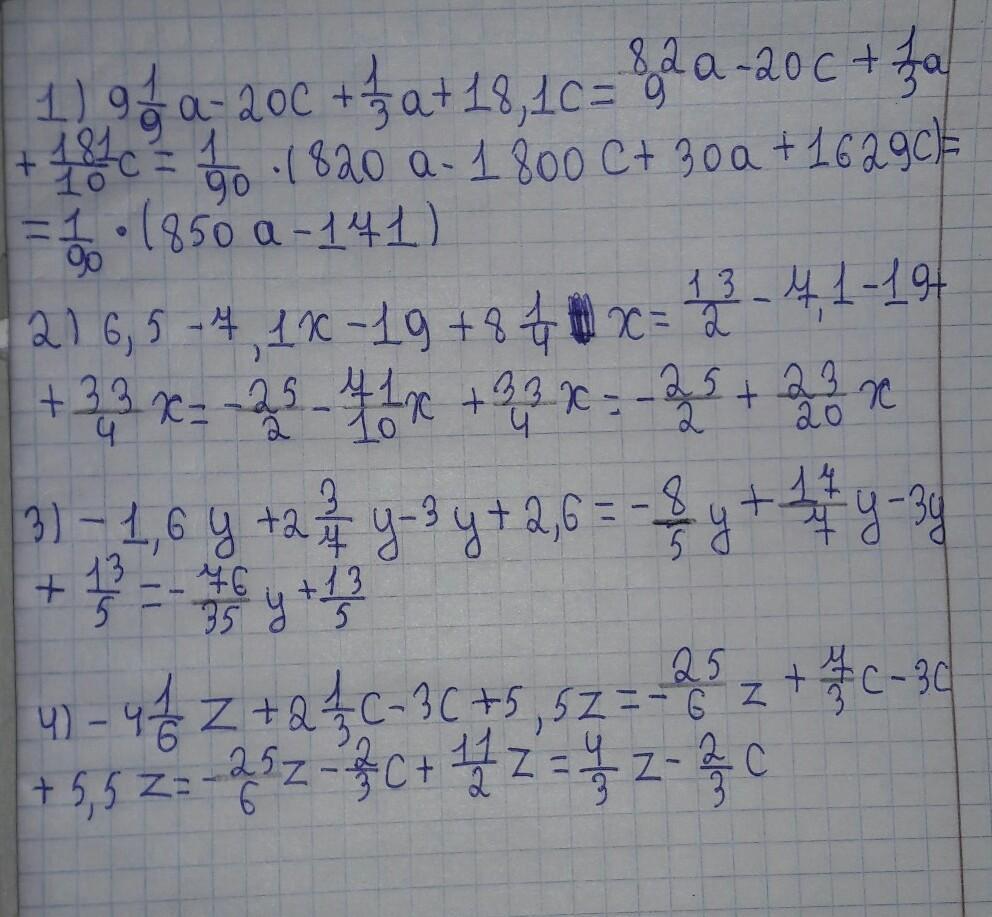 1) 9 1/9 a - 20c + 1/3 a + 18,1c = 82/9 a - 20c + 1/3 a
+ 181/10 c = 1/90 · (820 a - 1800 c + 30a + 1629c) =
= 1/90 · (850 a - 171)
2) 6,5 - 7,1x - 19 + 8 1/4 x = 13/2 - 7,1 - 19 +
+ 33/4 x = - 25/2 - 71/10 x + 33/4 x = - 25/2 + 23/20 x
3) - 1,6 y + 2 3/7 y - 3y + 2,6 = - 8/5 y + 17/7 y - 3y
+ 13/5 = - 76/35 y + 13/5
4) - 4 1/6 z + 2 1/3 c - 3c + 5,5z = - 25/6 z + 7/3 c - 3c
+ 5,5 z = - 25/6 z - 2/3 c + 11/2 z = 4/3 z - 2/3 c